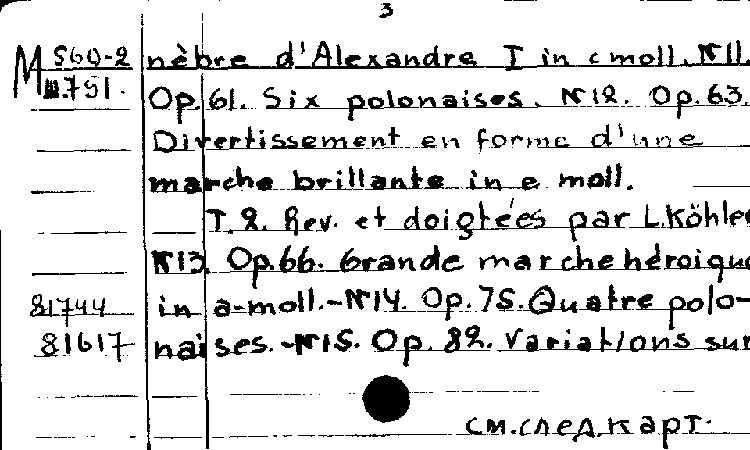 3
M 560-2 nèbre d'Alexandre I in c moll. №11.
III.751. Op. 61. Six polonaises. №12. Op. 63.
Divertissement en forme d'une
marche brillante in e moll.
T. 2. Rev. et doigtées par L. Köhler
№13. Op. 66. Grande marche héroique
81744 in a-moll.-№14. Op. 75. Quatre polo-
81617 naises.-№15. Op. 82. Variations sur
см. след. карт.